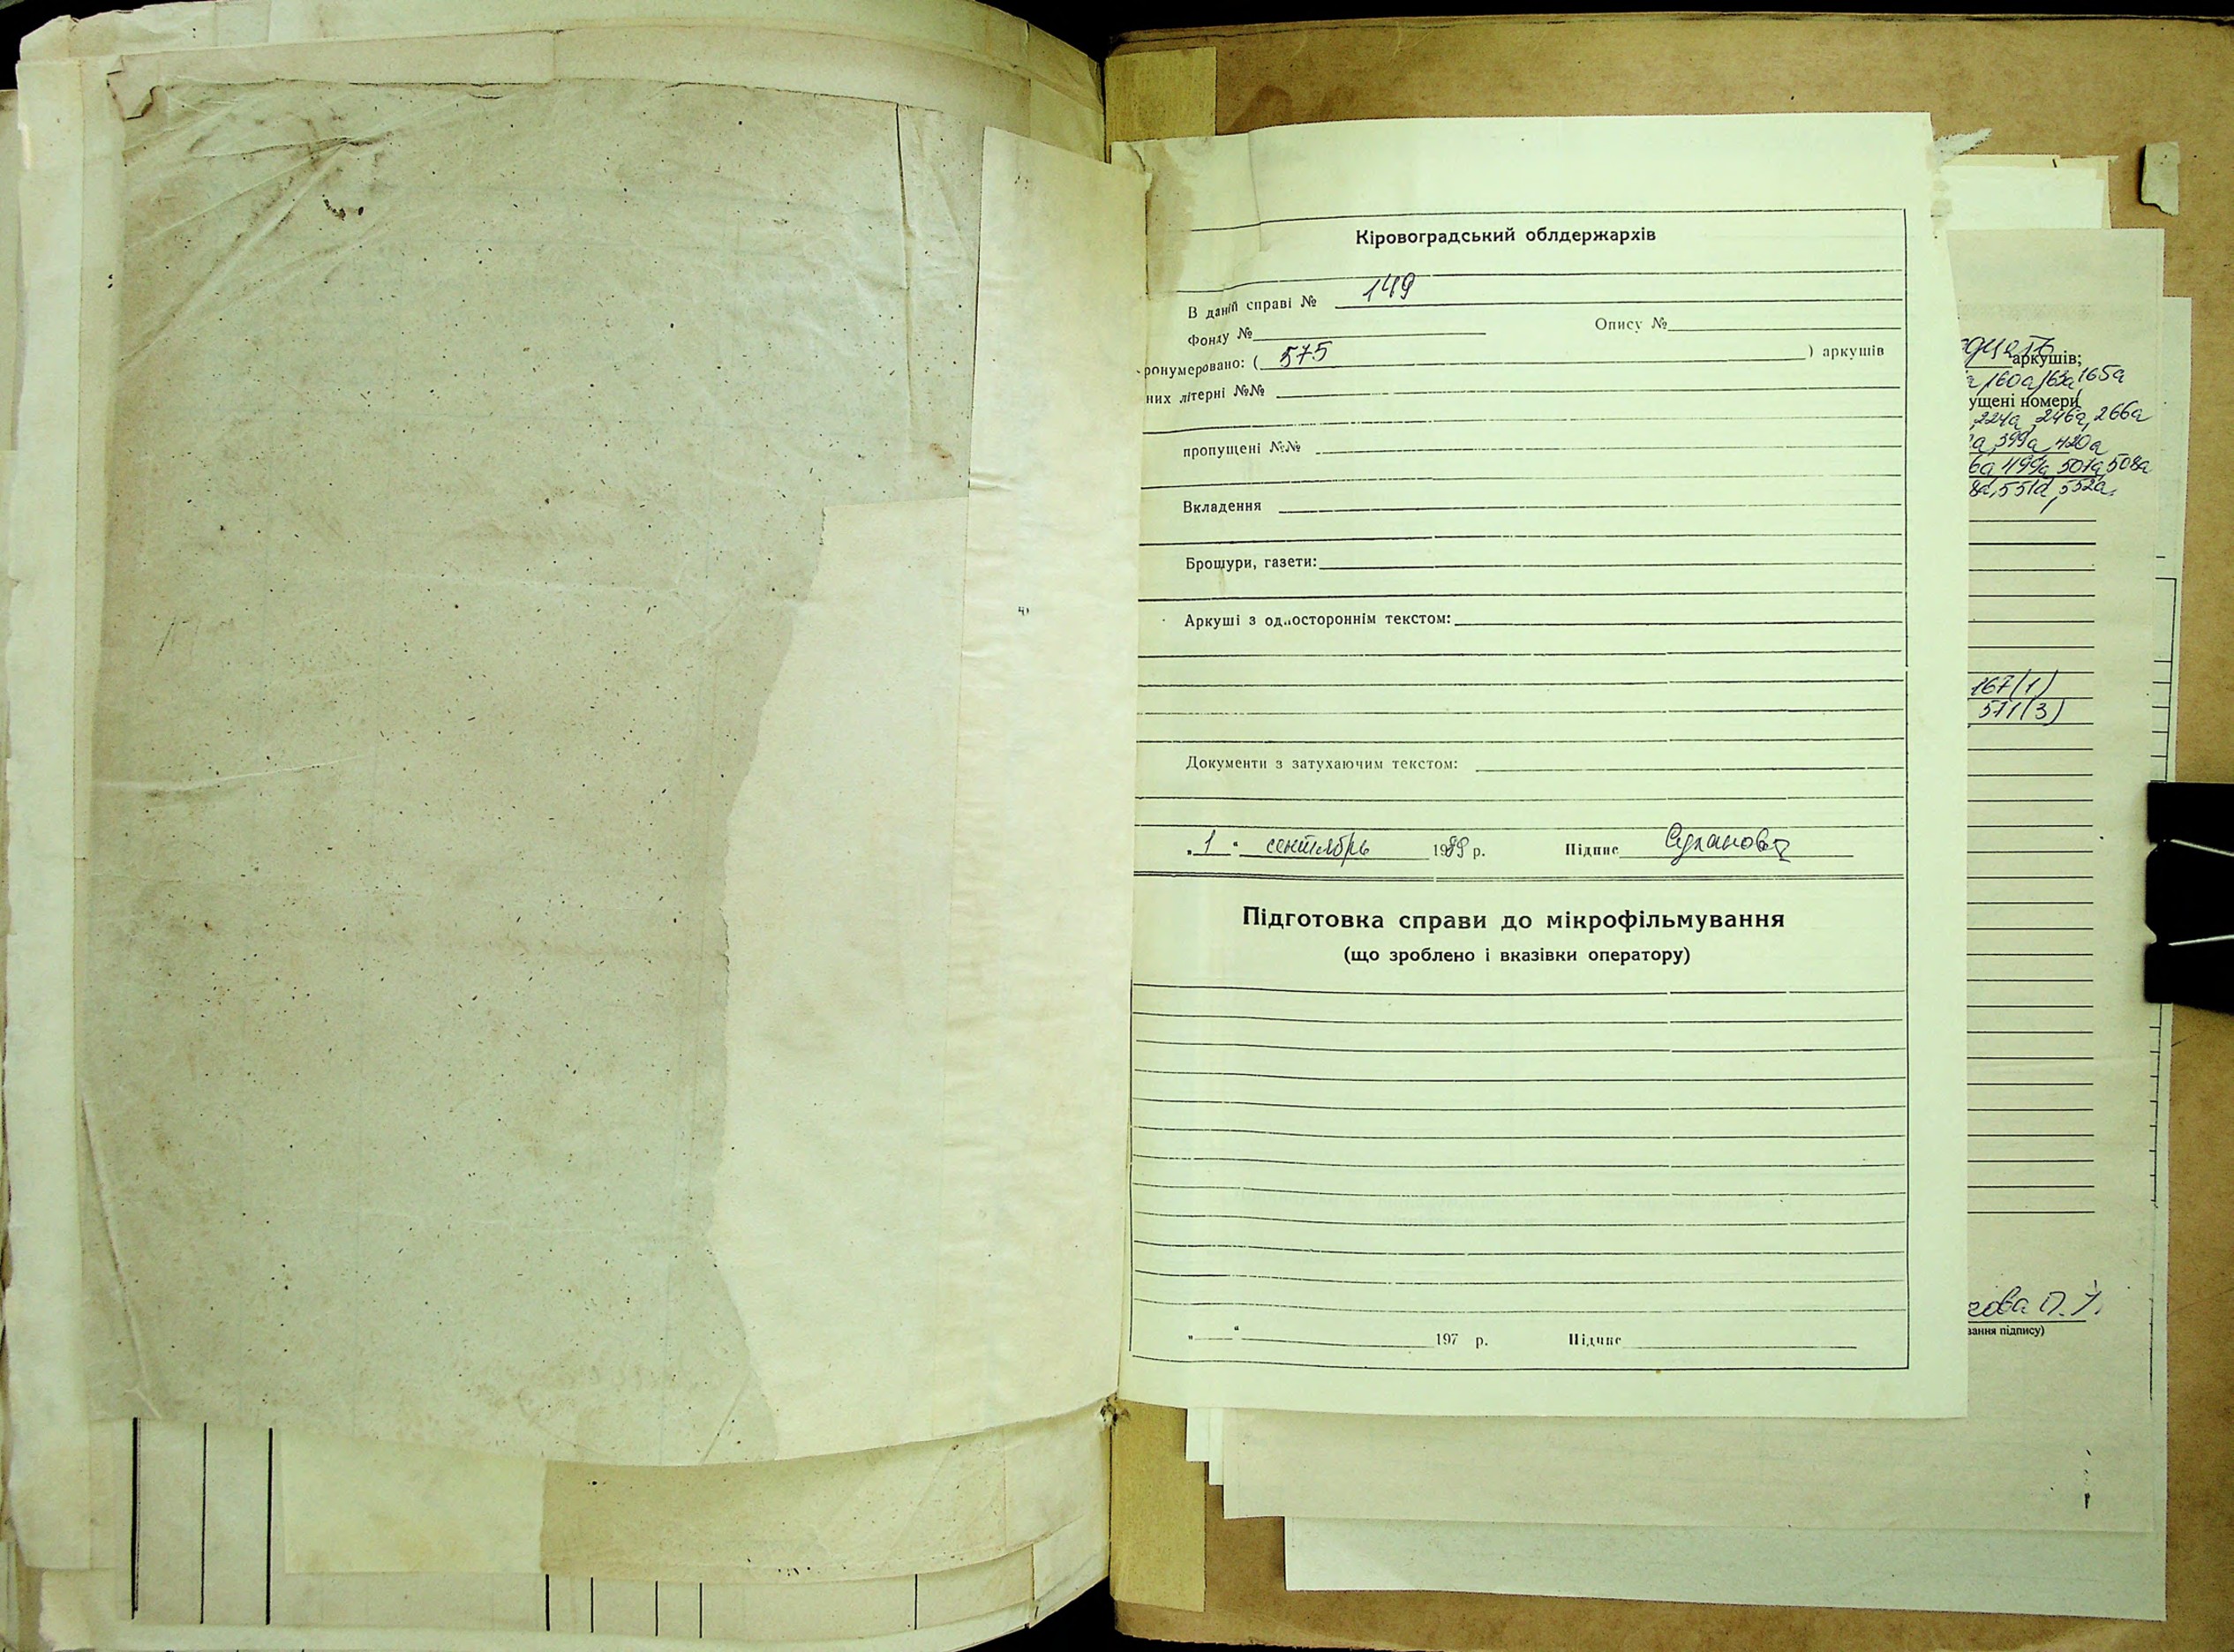 Кіровоградський облдержархів
В даній справі № 149
Фонду № Опису №
ронумеровано: ( 575 ) аркушів
них літерні №№
пропущені №№
Вкладення
Брошури, газети:
Аркуші з одностороннім текстом:
Документи з затухаючим текстом:
„ 1 " сентябрь 1989 р. Підпис Суханова
Підготовка справи до мікрофільмування
(що зроблено і вказівки оператору)
„ " 197 р. Підпис
аркушів;
160а, 163а, 165а
ущені номери
, 224а, 246а, 266а
а, 399а, 420а
6а, 499а, 507а, 508а
8а, 551а, 552а.
167(1)
571(3)
ова П. І.
вання підпису)